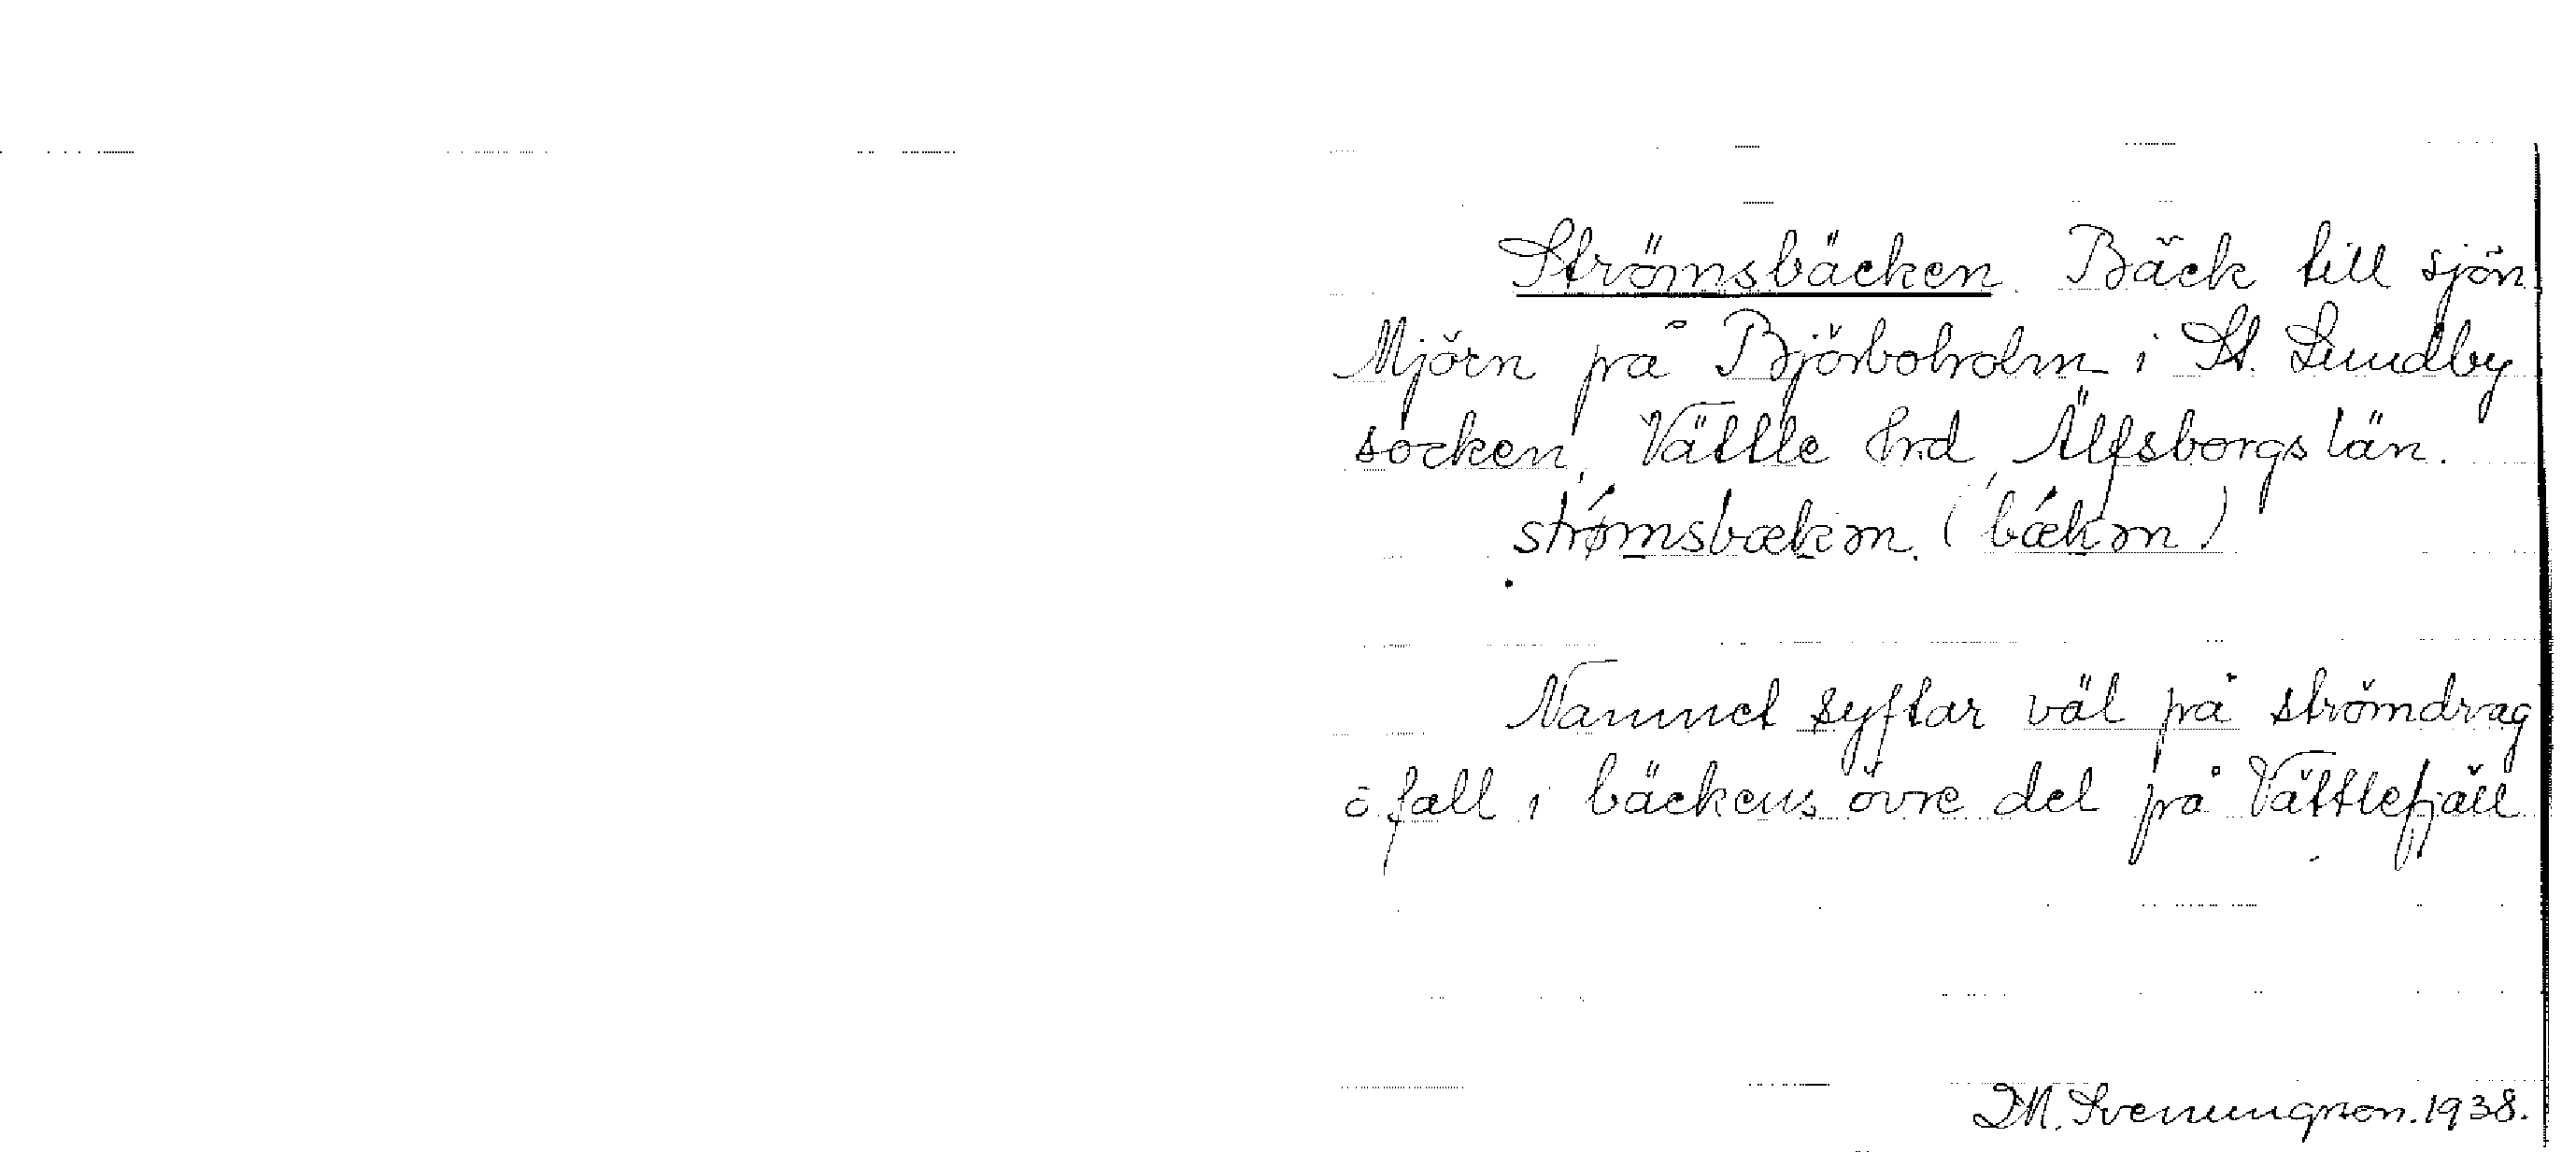 Strömsbäcken. Bäck till sjön
Mjörn på Björboholm i St. Lundby
socken, Vättle hrd, Älfsborgs län.
strǿmsbækən. (bǽkən)
Namnet syftar väl på strömdrag
o fall i bäckens övre del på Vättlefjäll
D.M. Svenungson. 1938.